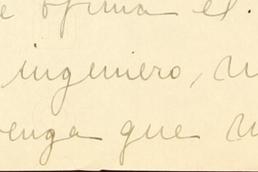 e opina el.
ingeniero,
venga que